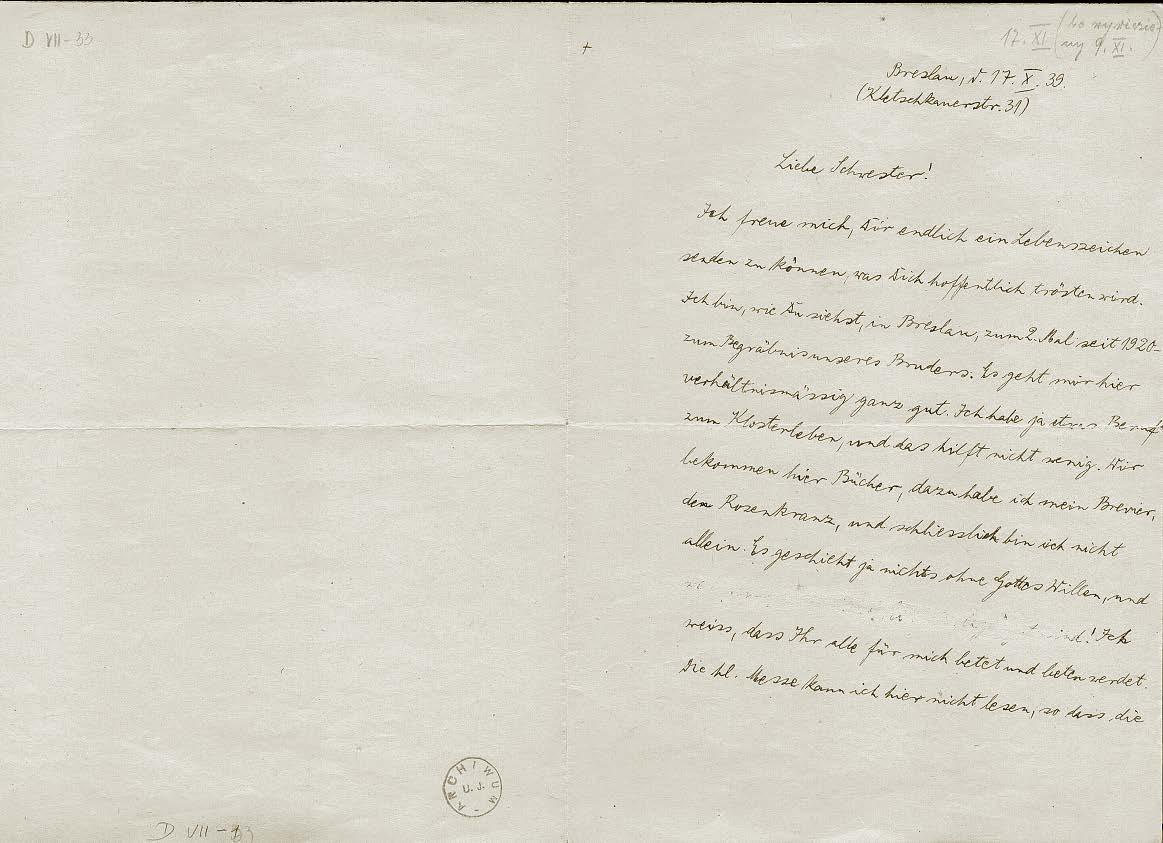 D VII-33
17. XI (bo wywiezie-
ny 9. XI.)
+
Breslau, d. 17. X. 39.
(Kletschkauerstr. 31)
Liebe Schwester!
Ich freue mich, Dir endlich ein Lebenszeichen
senden zu können, was Dich hoffentlich trösten wird.
Ich bin, wie Du siehst, in Breslau, zum 2. Mal seit 1920-
zum Begräbnis unseres Bruders. Es geht mir hier
verhältnismässig ganz gut. Ich habe ja etwas Beruf
zum Klosterleben, und das hilft nicht wenig. Wir
bekommen hier Bücher, dazu habe ich mein Brevier,
den Rosenkranz, und schliesslich bin ich nicht
allein. Es geschieht ja nichts ohne Gottes Willen, und
sind! Ich
weiss, dass Ihr alle für mich betet und beten werdet.
Die hl. Messe kann ich hier nicht lesen, so dass die
ARCHIWUM
U. J.
D VII-33